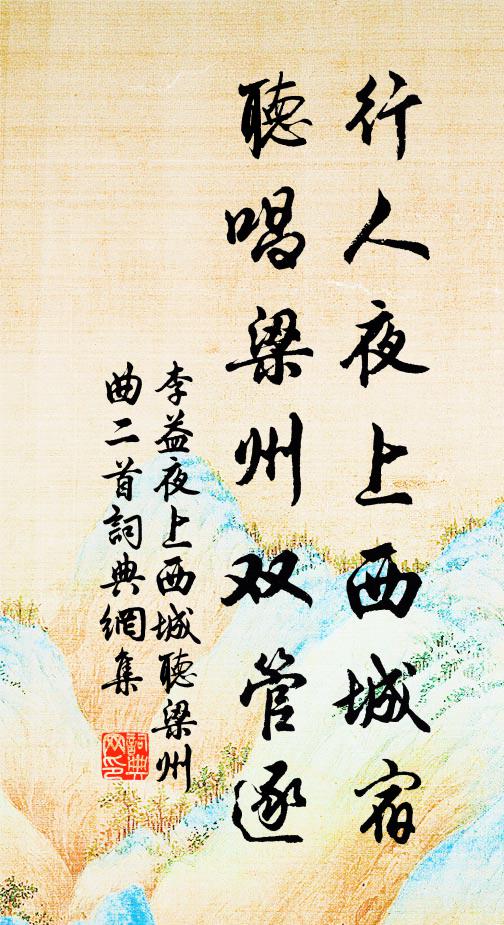 行人夜上西城宿
聽唱梁州双管逐
李益夜上西城聽梁州
曲二首詞典網集
詞典
网印